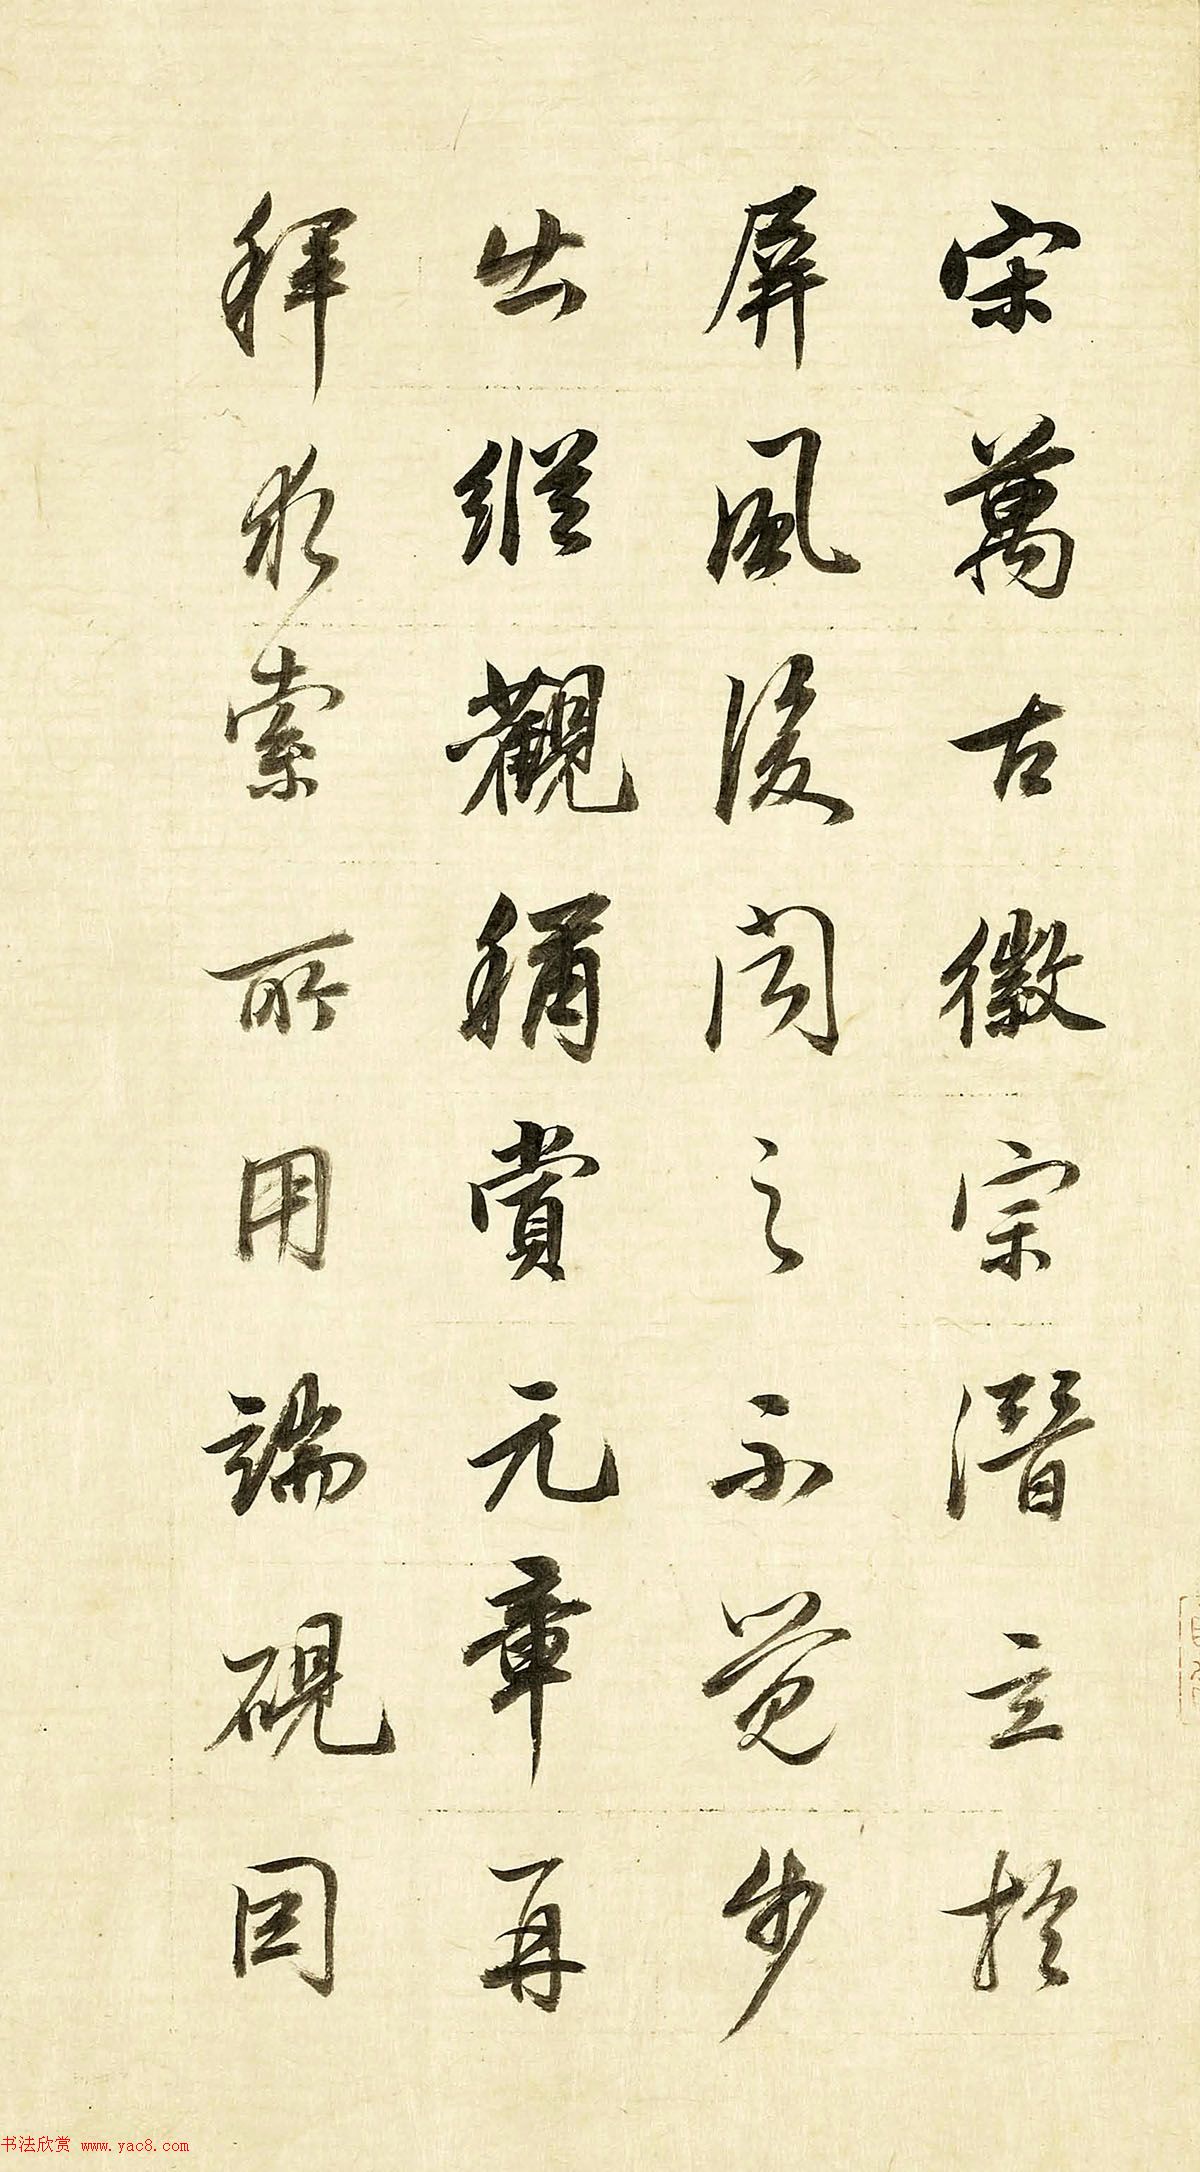 宋萬古徽宗潛立於
屏風後聞之不覺步
出縱觀稱賞元章再
拜求索所用端硯因
书法欣赏 www.yac8.com